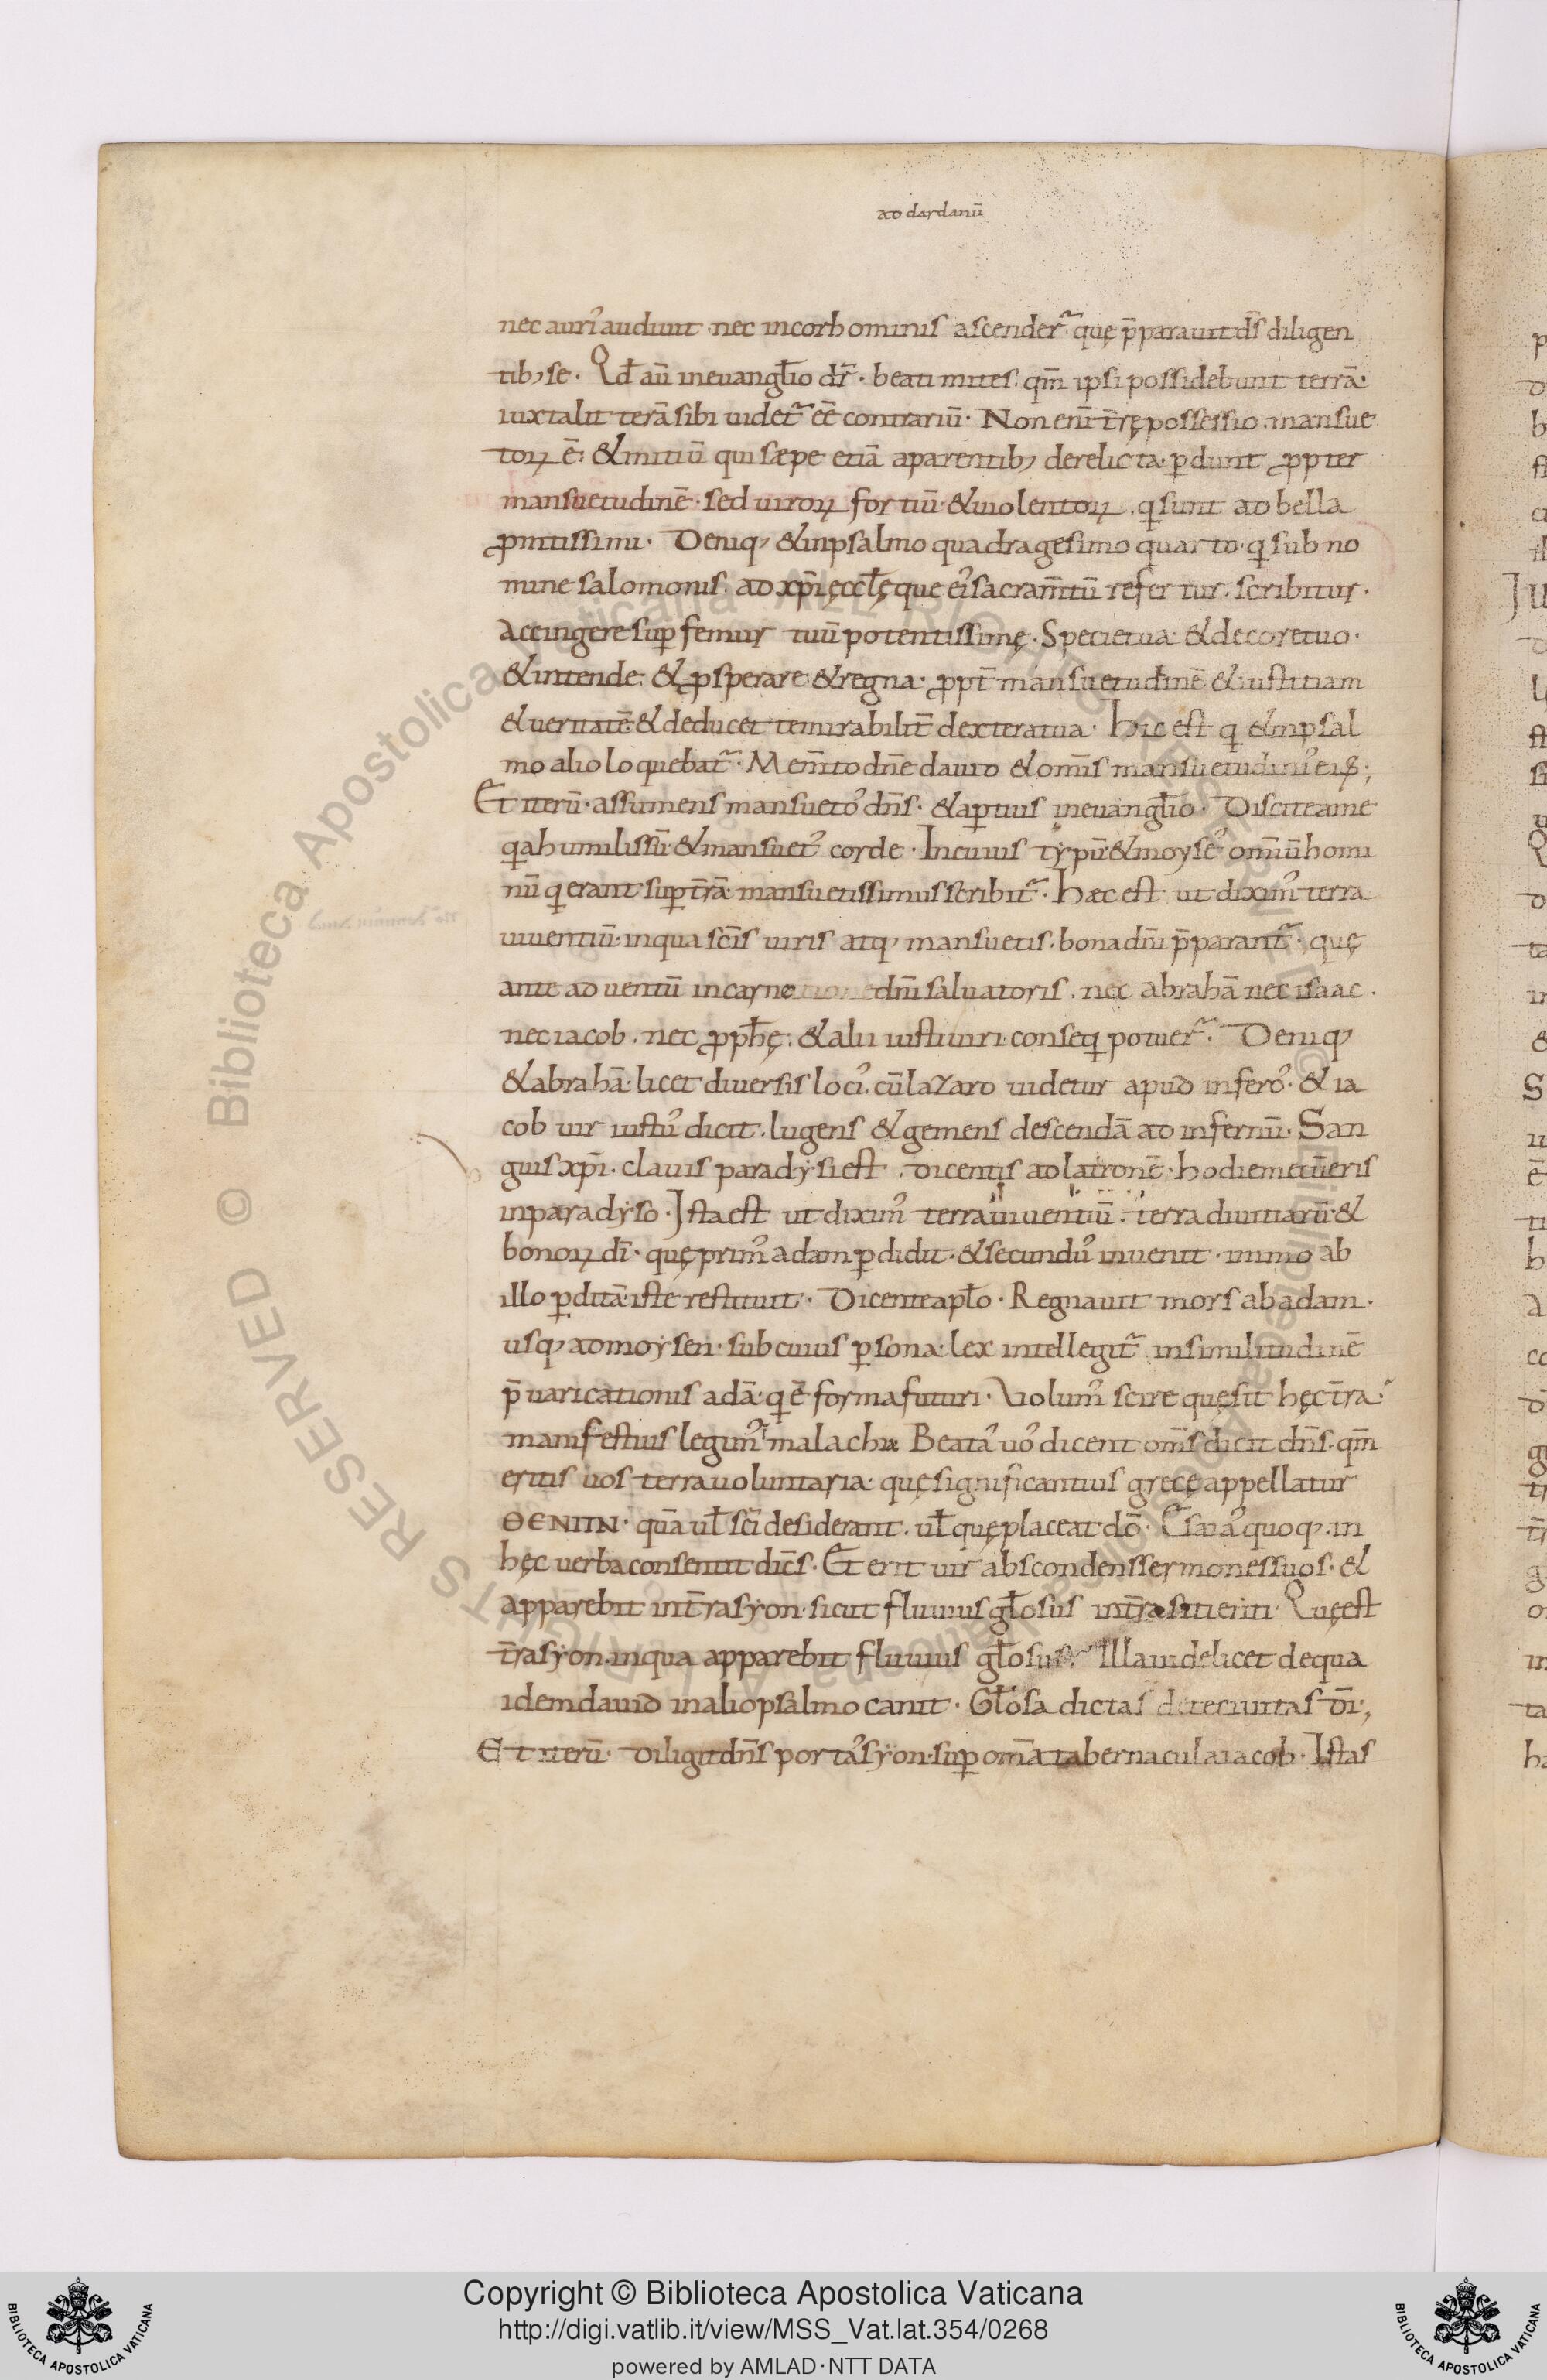 ad dardanū
nec auris audiuit· nec in cor hominis ascender̄· quę p̄parauit ds̄ diligen
tib; se· Qđ aū in euangl̄io dr̄· beati mites· qm̄ ipsi possidebunt terrā·
iuxta litterā sibi uidet̄ eē contrariū· Non eni t̄rę possessio mansue
toꝝ ē· & mitiū qui sæpe etiā a parentib; derelicta ꝑdunt ꝓpter
mansuetudinē· sed uiroꝝ fortiū & uiolentoꝝ· q sunt ad bella
ꝓmtissimi· Deniq; & in psalmo quadragesimo quarto· q sub no
mine salomonis· ad xp̄i ęccl̄ęque ei᾽ sacram̄tū refertur· scribitur·
Accingere suꝑ femur tuū potentissimę· Specie tua & decore tuo·
& intende· & ꝓsperare & regna· ꝓpt̄ mansuetudinē & iustitiam
& ueritatē & deducet te mirabilit̄ dextera tua· Hic est q & in psal
mo alio loquebat̄· Mem̄to dn̄e dauid & om̄is mansuetudinis ei᾽;
Et iterū· assumens mansueto᾽ dn̄s· & aꝑtius in euangl̄io· Discite a me
q̄a humilis sū & mansuet᾽ corde· In cuius typū & moyses om̄iū homi
nū q erant suꝑ t̄rā mansuetissimus scribit̄· Hæc est ut dixim᾽ terra
uiuentiū· in qua sc̄is uiris atq; mansuetis· bona dn̄i p̄parant̄· quę
ante aduentū in carne dn̄i saluatoris· nec abrahā nec isaac·
nec iacob· nec ꝓph̄ę· & alii iusti uiri conseq potuer̄· Deniq;
& abrahā· licet diuersis loci᾽· cū lazaro uidetur apud infero᾽· & ia
cob uir iustu᾽ dicit· lugens & gemens descendā ad infernū· San
guis xp̄i· clauis paradysi est· dicentis ad latronē· hodie mecū eris
in paradyso· Ista est ut dixim᾽ terra uiuentiū· terra diuitiarū &
bonoꝝ dī· quę prim᾽ adam ꝑdidit· & secundu᾽ inuenit· immo ab
illo ꝑditā iste restituit· Dicente apl̄o· Regnauit mors ab adam·
usq; ad moysen· sub cuius ꝑsona lex intellegit̄· in similitudinē
p̄uaricationis adā· q ē forma futuri· Volum᾽ scire quę sit hęc t̄ra·
manifestius legim᾽ malachiæ Beata᾽ uo᾽ dicent om̄s dicit dn̄s· qm̄
eritis uos terra uoluntaria· quę significantius gręcę appellatur
ΘЄΛΗΤΗ· quā ul̄ sc̄i desiderant· ul̄ quę placeat dō· Esaia᾽ quoq; in
hęc uerba consentit dic̄s· Et erit uir abscondens sermones suos· &
apparebit in t̄ra syon· sicut fluuius gl̄osus in t̄ra sitienti· Quę est
t̄ra syon in qua apparebit fluuius gl̄osus· Illa uidelicet de qua
idem dauid in alio psalmo canit· Gl̄osa dicta s de te ciuitas dī;
Et iterū· diligit dn̄s porta᾽ syon· suꝑ om̄a tabernacula iacob· Istas
Copyright © Biblioteca Apostolica Vaticana
http://digi.vatlib.it/view/MSS_Vat.lat.354/0268
powered by AMLAD·NTT DATA